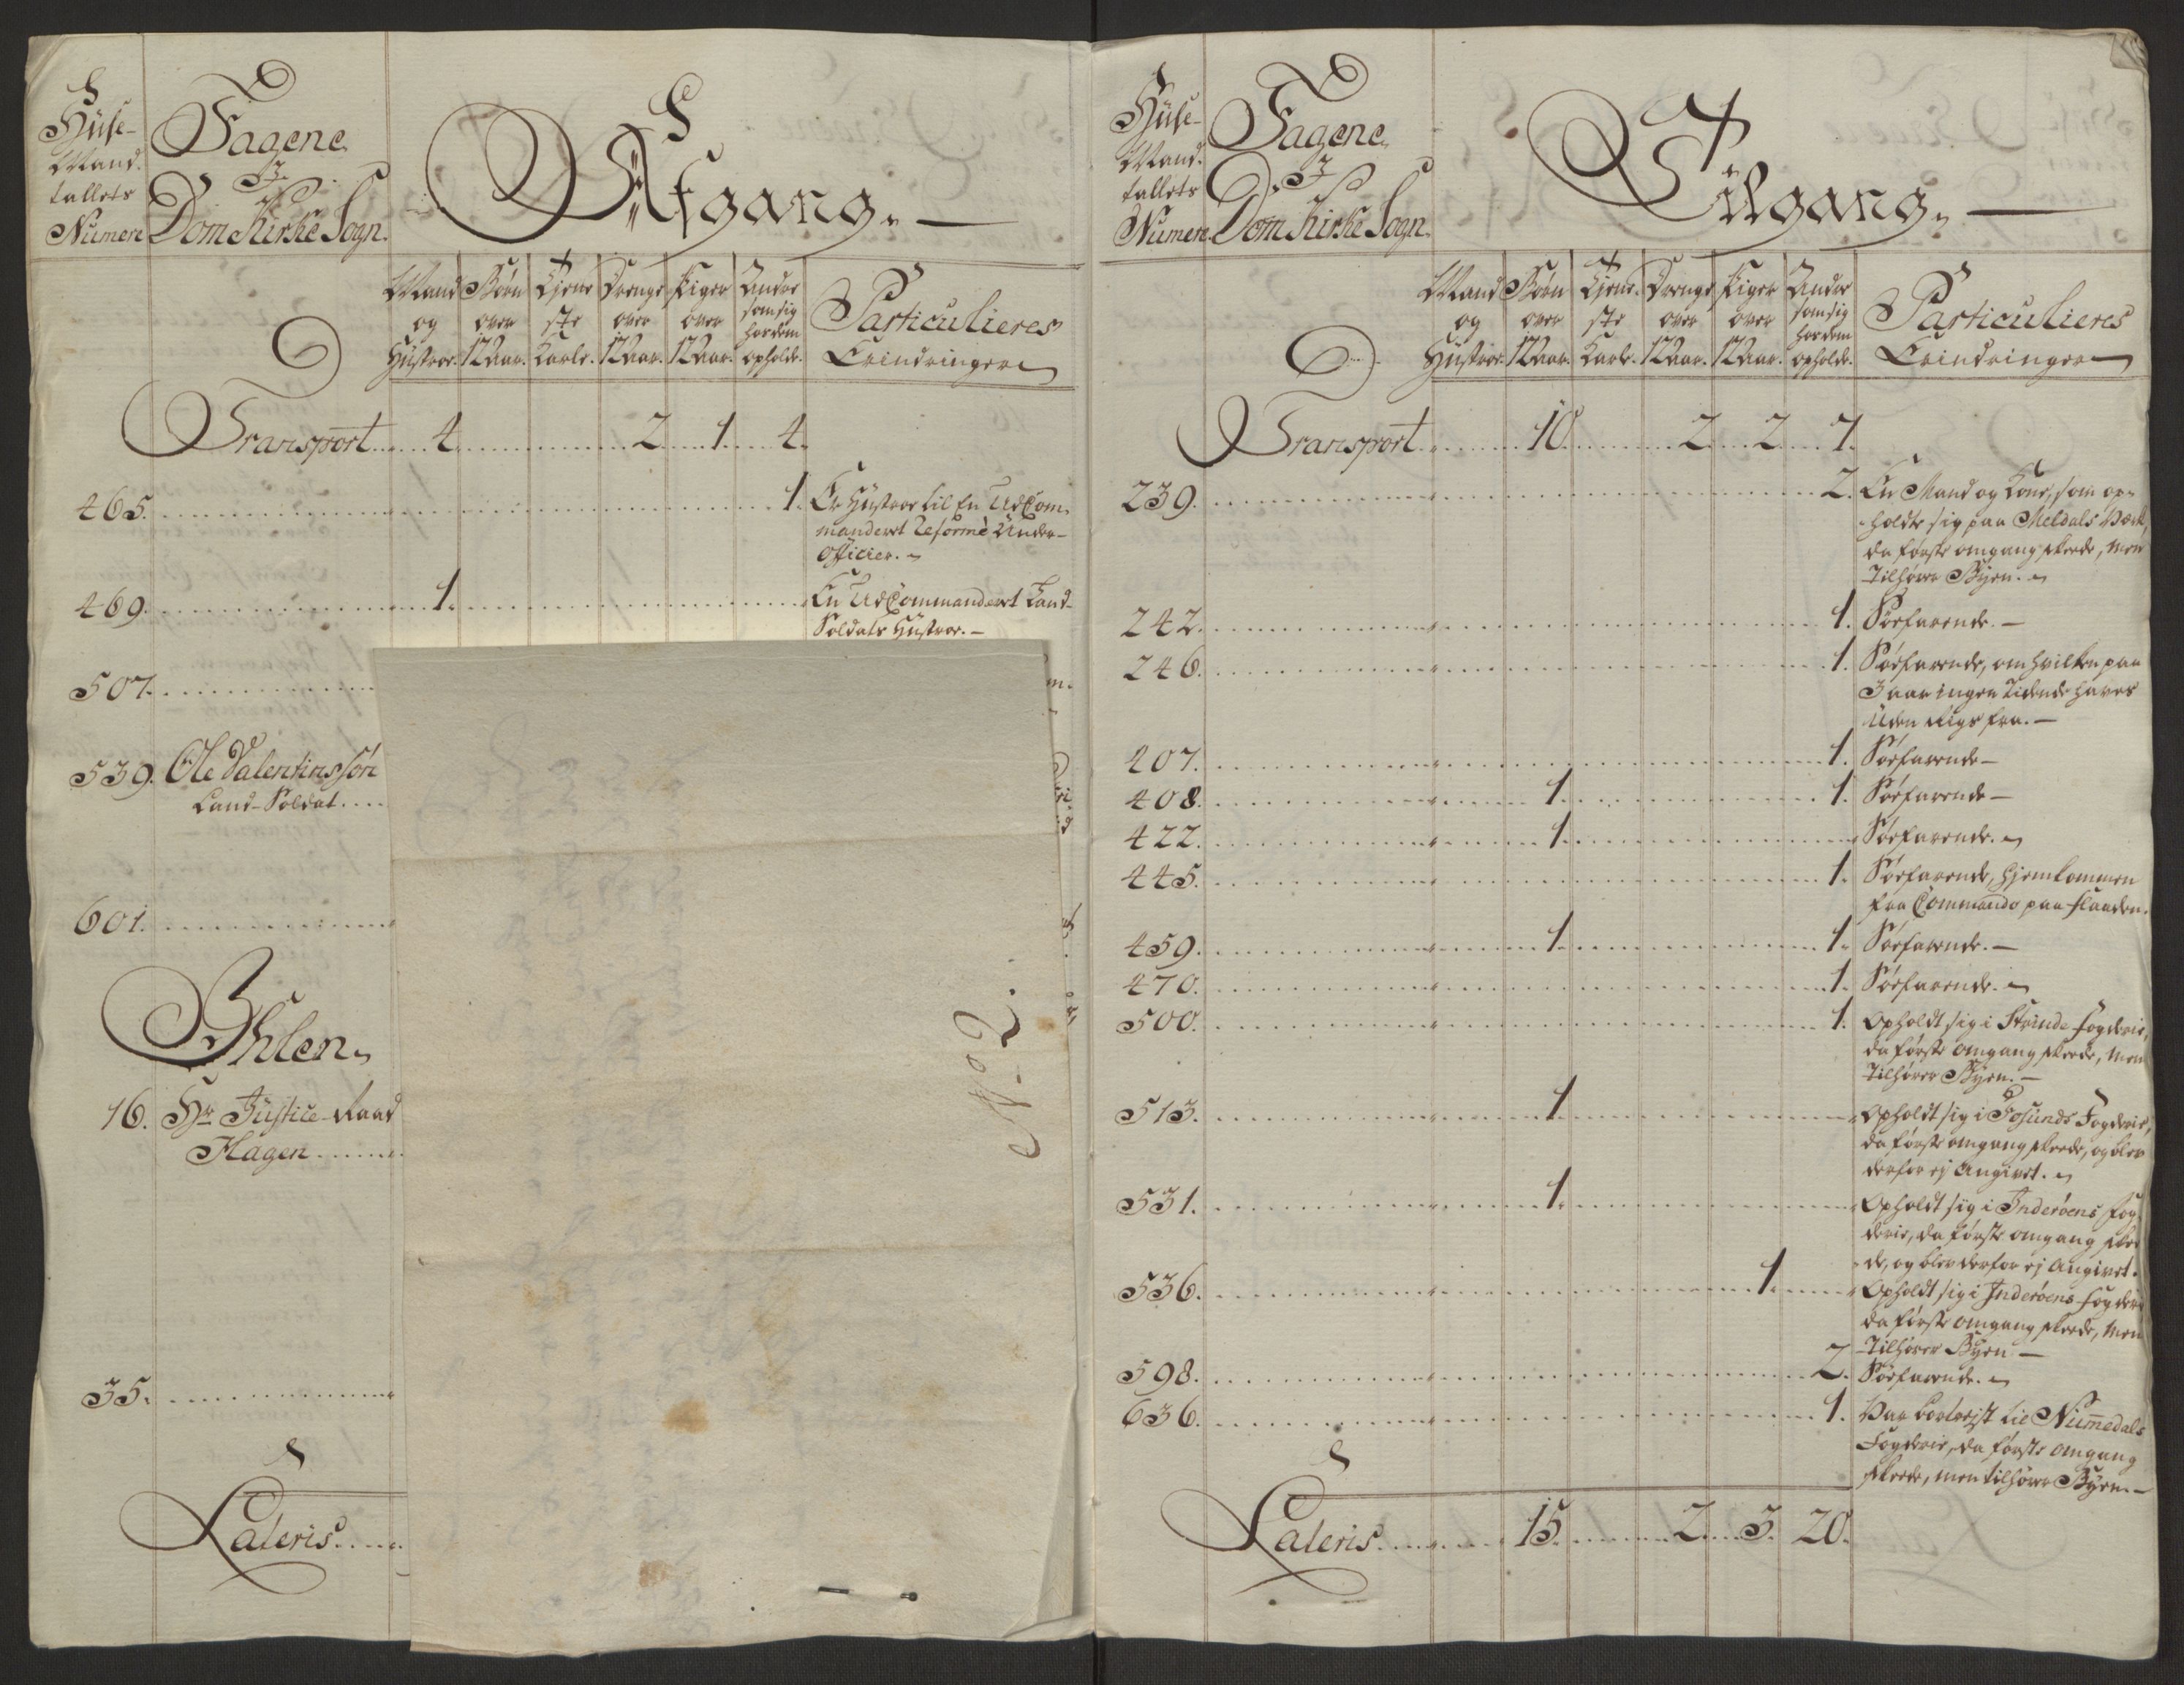 Huse-
Mand-
tallets
Numere
Fagene
I
Dom Kirke Sogn.
Afgang.
Mand
og
Hustroe.
Børn
over
12 Aar.
Tjene
ste
Karle.
Drenge
over
12 Aar.
Piger
over
12 Aar.
Andre
som sig
hos dem
opholde.
Particulieres
Erindringer
Transport 4. 2. 1. 4.
465. 1. En Hustroe til En UdCom-
manderet Reformè Under-
Officier.
469. 1. En UdCommanderet Land-
Soldats Hustroe.
507.
539. Ole Valentinssøn
Land-Soldat
601.
Ihlen.
16. Hr Justice-Raad
Hagen
35.
Lateris.
No 2.
Huse-
Mand-
tallets
Numere
Fagene
I
Dom Kirke Sogn.
Tilgang.
Mand
og
Hustroe.
Børn
over
12 Aar.
Tjene-
ste
Karle.
Drenge
over
12 Aar.
Piger
over
12 Aar.
Andre
som sig
hos dem
opholde.
Particulieres
Erindringer
Transport 10. 2. 2. 7.
239. 2. En Mand og Kone, som op-
holdte sig paa Meldals Værk,
da første omgang skeede, men
Tilhører Byen.
242. 1. Søefarende.
246. 1. Søefarende, om hvilken paa
3 aar ingen Tidende haves
Uden Rigs fra.
407. 1. Søefarende
408. 1. 1. Søefarende
422. 1. Søefarende.
445. 1. Søefarende, hjemkommen
fra Commando paa Flaaden.
459. 1. 1. Søefarende.
470. 1. Søefarende.
500. 1. Opholdt sig i Strinde Fogderie,
da første omgang skeede, men
Tilhører Byen.
513. 1. Opholdt sig i Fosunds Fogderie,
da første omgang skeede, og blev
derfor ej Angivet.
531. 1. Opholdt sig i Inderøens Fog
derie, da første omgang skee
de, og blev derfor ej Angivet.
536. 1. Opholdt sig i Inderøens Fogderie
da første omgang skeede, men
Tilhører Byen
598. 2. Søefarende.
636. 1. Var bortrejst til Nummedals
Fogderie, da første omgang
skeede, men tilhører Byen.
Lateris. 15. 2. 3. 20.